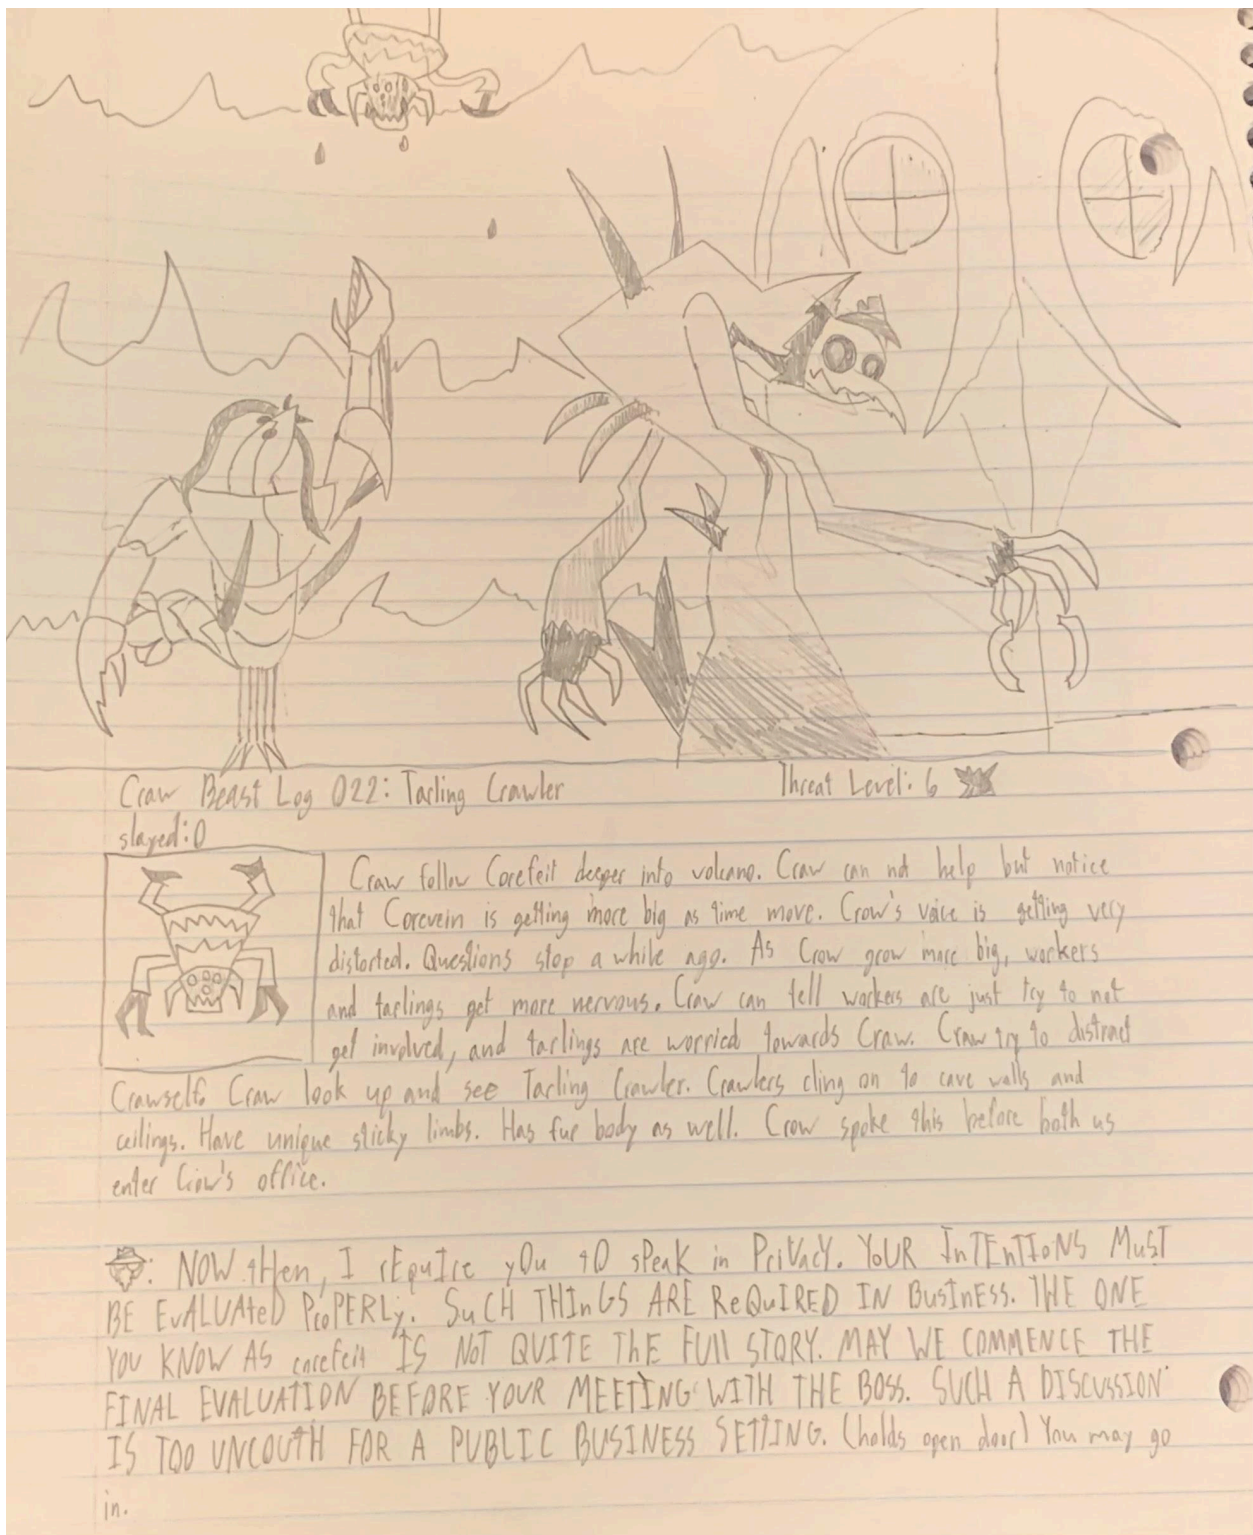 Craw Beast Log 022: Tarling Crawler
Threat Level: 6
slayed: 0
Craw follow Corefeit deeper into volcano. Craw can not help but notice
that Corevein is getting more big as time move. Crow's voice is getting very
distorted. Questions stop a while ago. As Crow grow more big, workers
and tarlings get more nervous. Craw can tell workers are just try to not
get involved, and tarlings are worried towards Craw. Craw try to distract
Crawself. Craw look up and see Tarling Crawler. Crawlers cling on to cave walls and
ceilings. Have unique sticky limbs. Has fur body as well. Crow spoke this before both us
enter Crow's office.
: NOW tHen, I rEquIre yOu tO sPeak in PriVacY. YoUR InTEnTIoNS MusT
BE EvALUAteD ProPERLy. SuCH THInGS ARE ReQuIRED IN BusInEss. THE ONE
YOU KNOW AS corefeit IS NOT QUITE ThE FUll STORY. MAY WE COMMENCE THE
FINAL EVALUATION BEFORE YOUR MEETING WITH THE BOSS. SUCH A DISCUSSION
IS TOO UNCOUTH FOR A PUBLIC BUSINESS SETTING. (holds open door) You may go
in.